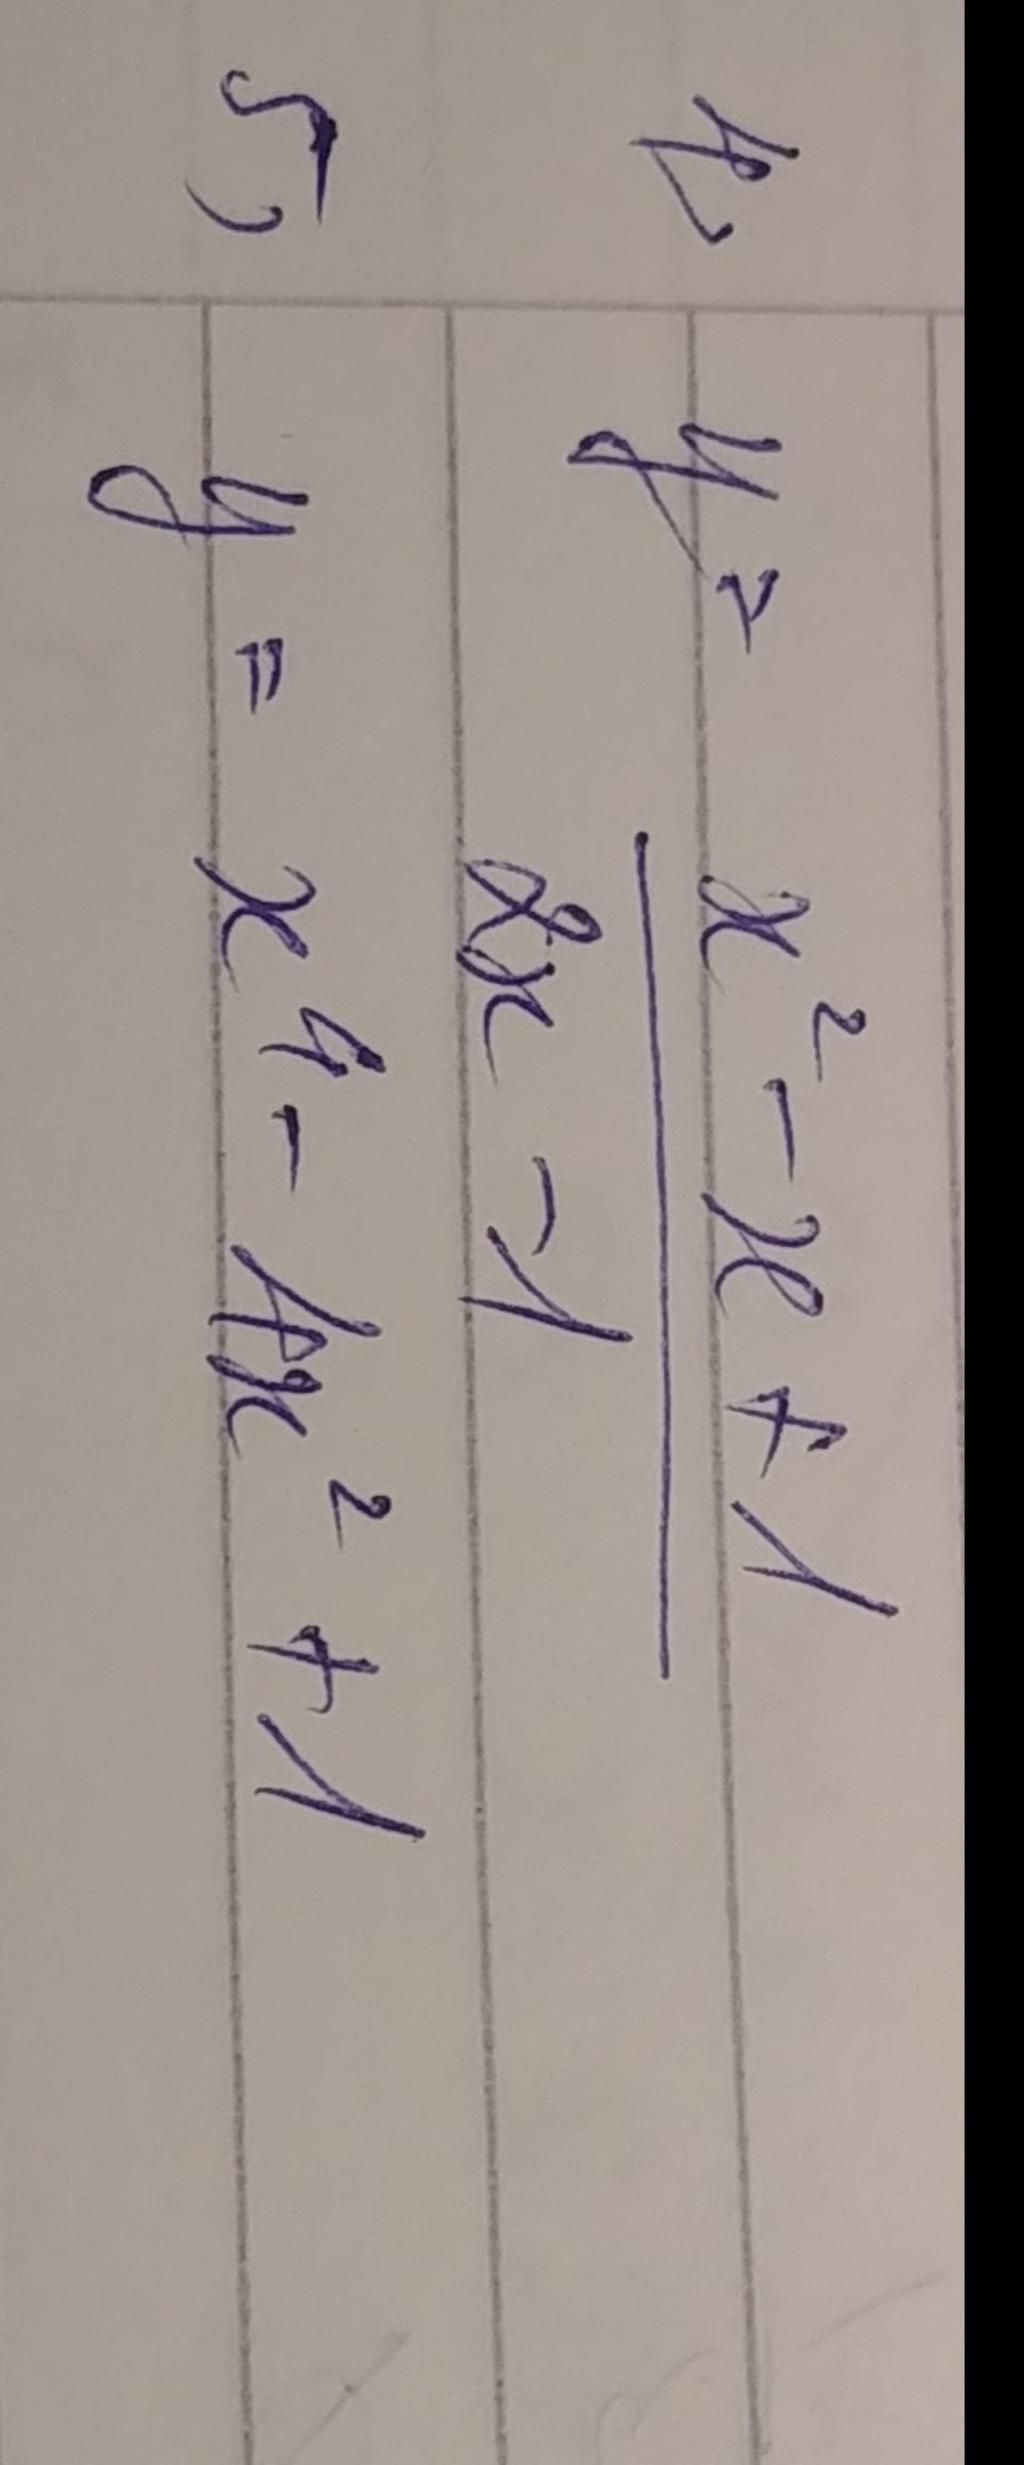 4, y = x² - x + 1
2x - 1
5, y = x⁴ - 4x² + 1